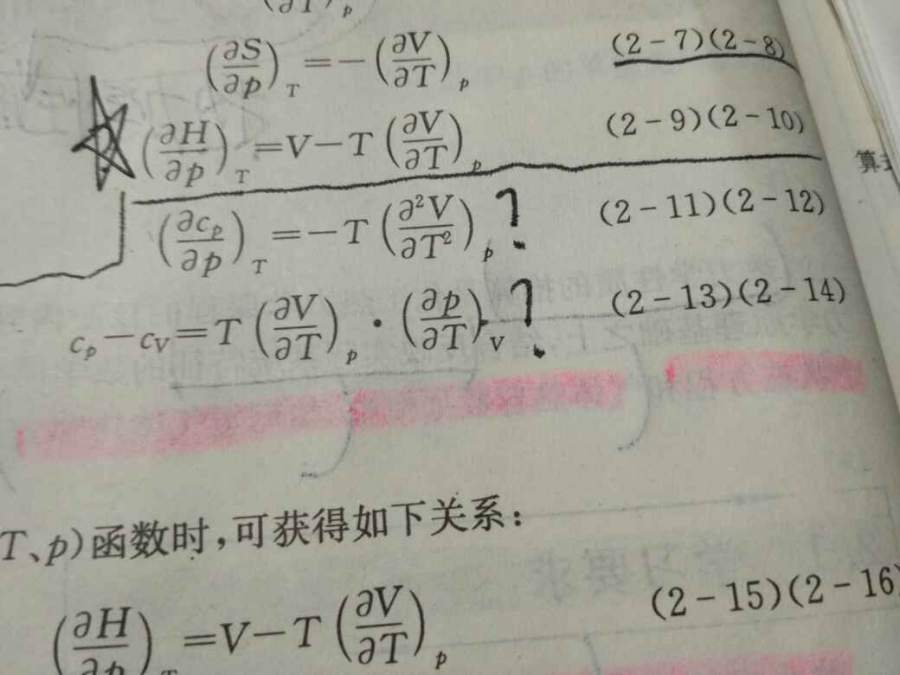 (∂T)_p
(∂S/∂p)_T = -(∂V/∂T)_p (2-7)(2-8)
(∂H/∂p)_T = V-T(∂V/∂T)_p (2-9)(2-10)
算
(∂c_p/∂p)_T = -T(∂²V/∂T²)_p ? (2-11)(2-12)
c_p-c_V = T(∂V/∂T)_p·(∂p/∂T)_V ? (2-13)(2-14)
T、p)函数时,可获得如下关系:
(∂H/∂p)_T = V-T(∂V/∂T)_p (2-15)(2-16)